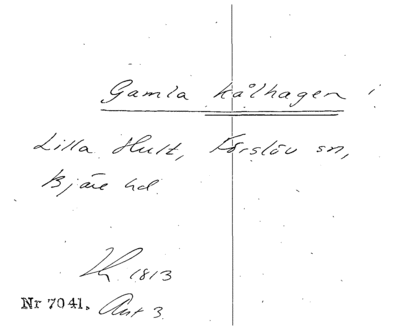 Gamla Kålhagen i
Lilla Hult, Förslöv sn,
Bjäre hd.
1813
Nr 7041. Ant 3.